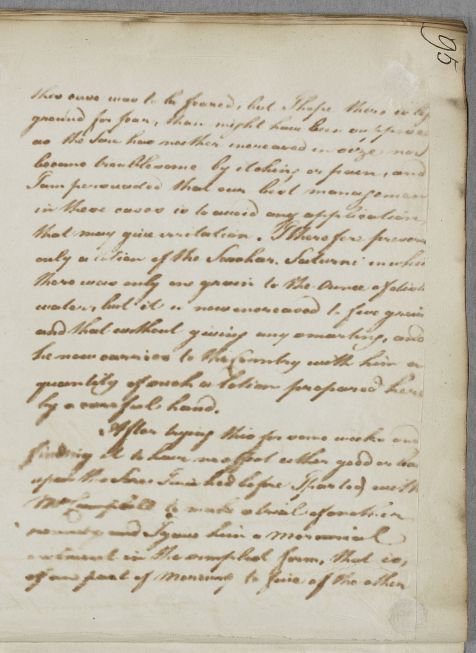 95
this case was to be feared, but I hope there is less
ground for fear, than might have been supposed
as the Sore has neither increased in size, nor
become troublesome by itching or pain, and
I am persuaded that our best management
in these cases is to avoid any application
that may give irritation. I therefore
only a lotion of the Sacchar. Saturni in which
there was only one grain to the ounce of
water, but it is now increased to five grains
and that without giving any smarting, and
he now carries to the Country with him a
quantity of such a lotion prepared here
by a careful hand.
After trying this for some weeks and
finding it to have no effect either good or bad
upon the Sores I had before I parted with
Mr Campbell to make a trial of another
remedy and I gave him a Mercurial
ointment in the simplest form, that is,
of one part of Mercury to five of the other